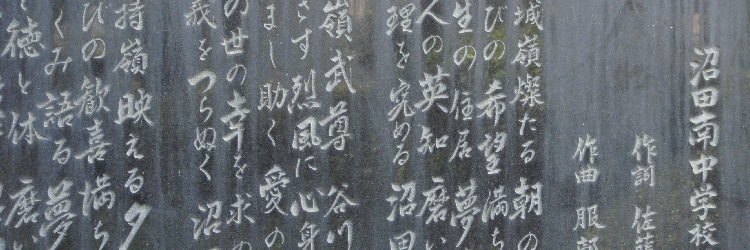 沼田南中学校
作詞 佐
作曲 服
城嶺燦たる 朝の
びの 希望 満ち
生の 住居 夢
人の 英知 磨い
理を 究める 沼田
嶺 武尊 谷川
さす 烈風に 心身
まし助く 愛の
の世の幸を 求め
義を つらぬく 沼
持嶺 映える 夕
びの 歓喜 満ち
くみ語る 夢
徳と体 磨い